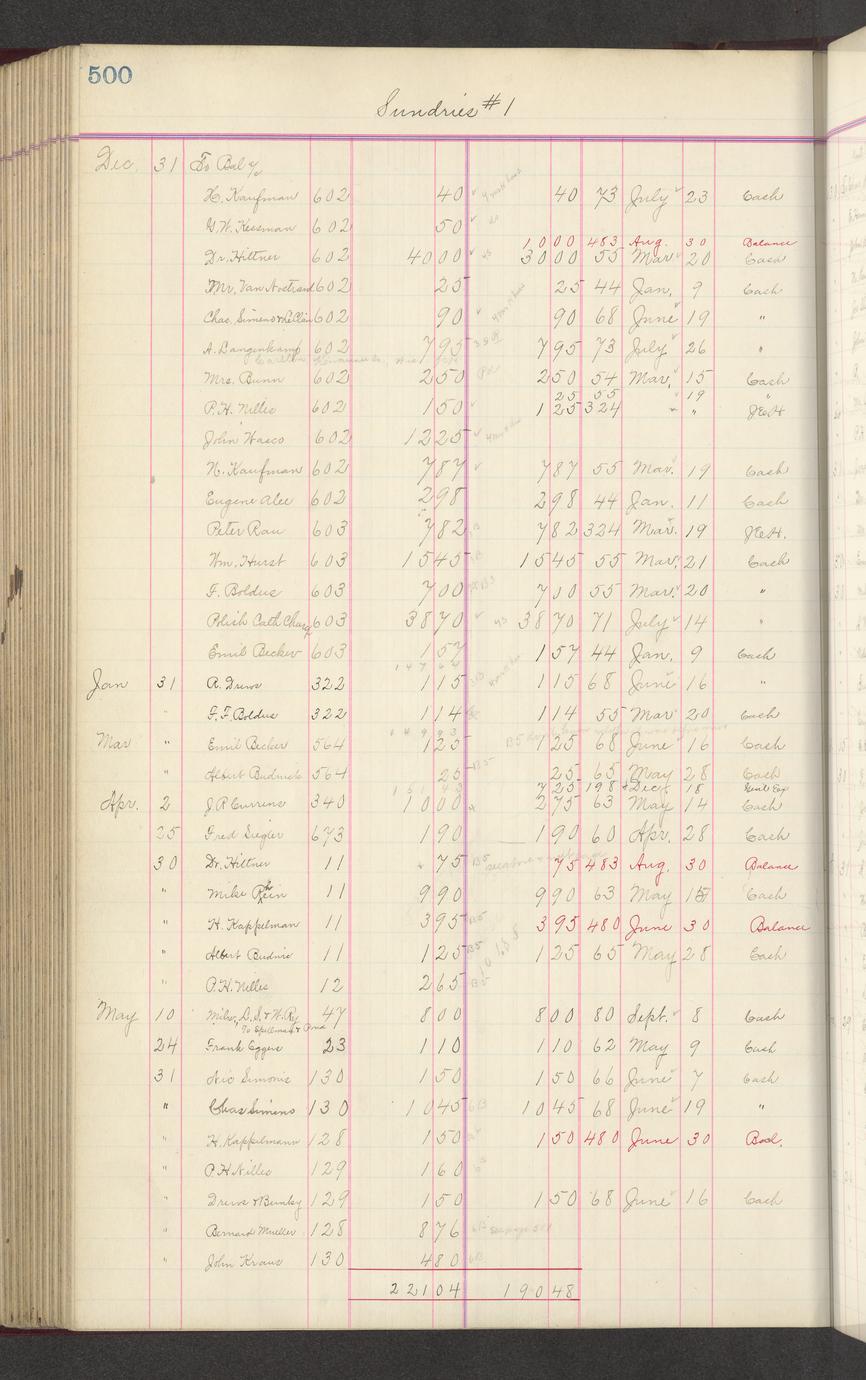 500
Sundries #1
Dec. 31 To Bal
H. Kaufman 602 40 40 73 July 23 Cash
G.W. Keesman 602 50
1000 483 Aug. 30 Balance
Dr. Hittner 602 4000 3000 55 Mar 20 Cash
Mr. Van Nostrand 602 25 25 44 Jan. 9 Cash
Chas. Simens 602 90 90 68 June 19 "
A. Langenkamp 602 795 795 73 July 26 "
Mrs. Bunn 602 250 250 54 Mar. 15 Cash
25 55 " 19 "
P.H. Nilles 602 150 125 324 " "
John Wasco 602 1225
N. Kaufman 602 787 787 55 Mar. 19 Cash
Eugene Alee 602 298 298 44 Jan. 11 Cash
Peter Rau 603 782 782 324 Mar. 19
Wm. Hurst 603 1545 1545 55 Mar. 21 Cash
F. Boldus 603 700 700 55 Mar. 20 "
Polish Cath Church 603 3870 3870 71 July 14 "
Emil Becker 603 157 157 44 Jan. 9 Cash
Jan 31 A. Drews 322 115 115 68 June 16 "
" F.F. Boldus 322 114 114 55 Mar 20 Cash
Mar " Emil Becker 564 125 125 68 June 16 Cash
" Albert Budnick 564 25 25 65 May 28 Cash
725 198 Dec. 18 Genl Exp
Apr. 2 J.R. Currens 340 1000 275 63 May 14 Cash
25 Fred Siegler 673 190 190 60 Apr. 28 Cash
30 Dr. Hittner 11 75 75 483 Aug. 30 Balance
" Mike Rhein 11 990 990 63 May 15 Cash
" H. Kappelman 11 395 395 480 June 30 Balance
" Albert Budnic 11 125 125 65 May 28 Cash
" P.H. Nilles 12 265
May 10 Milw. L.S. & W. Ry 47 800 800 80 Sept. 8 Cash
24 Frank Eggers 23 110 110 62 May 9 Cash
31 Nic Simonis 130 150 150 66 June 7 Cash
" Chas Simens 130 1045 1045 68 June 19 "
" H. Kappelmann 128 150 150 480 June 30 Bal.
" P.H. Nilles 129 160
" Drews & Bunky 129 150 150 68 June 16 Cash
" Bernard Mueller 128 876
" John Kraus 130 480
22104 19048